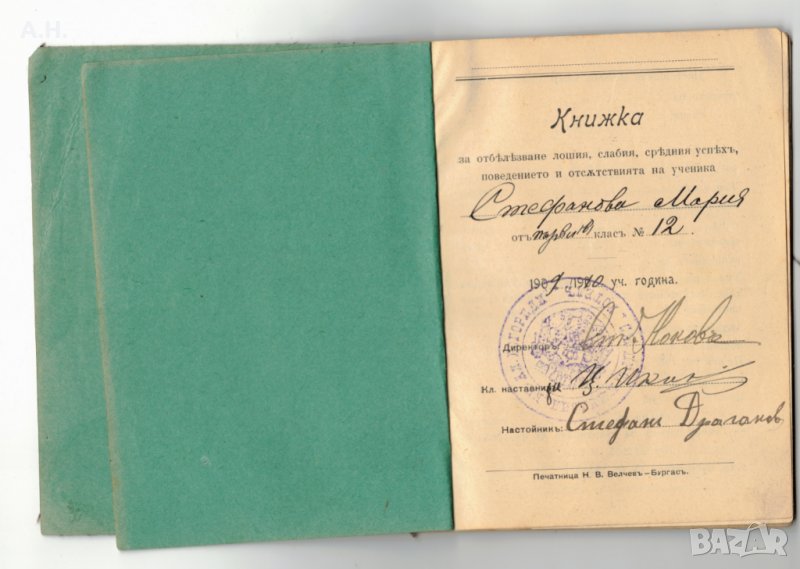 А.Н.
Книжка
за отбѣлѣзване лошия, слабия, срѣдния успѣхъ,
поведението и отсѫтствията на ученика
Стефанова Мария
отъ първи класъ № 12.
1909/1910 уч. година.
Директоръ: Ст. Коковъ
Кл. наставникъ
Настойникъ: Стефанъ Драгановъ
Печатница Н. В. Велчевъ—Бургасъ.
BAZAR